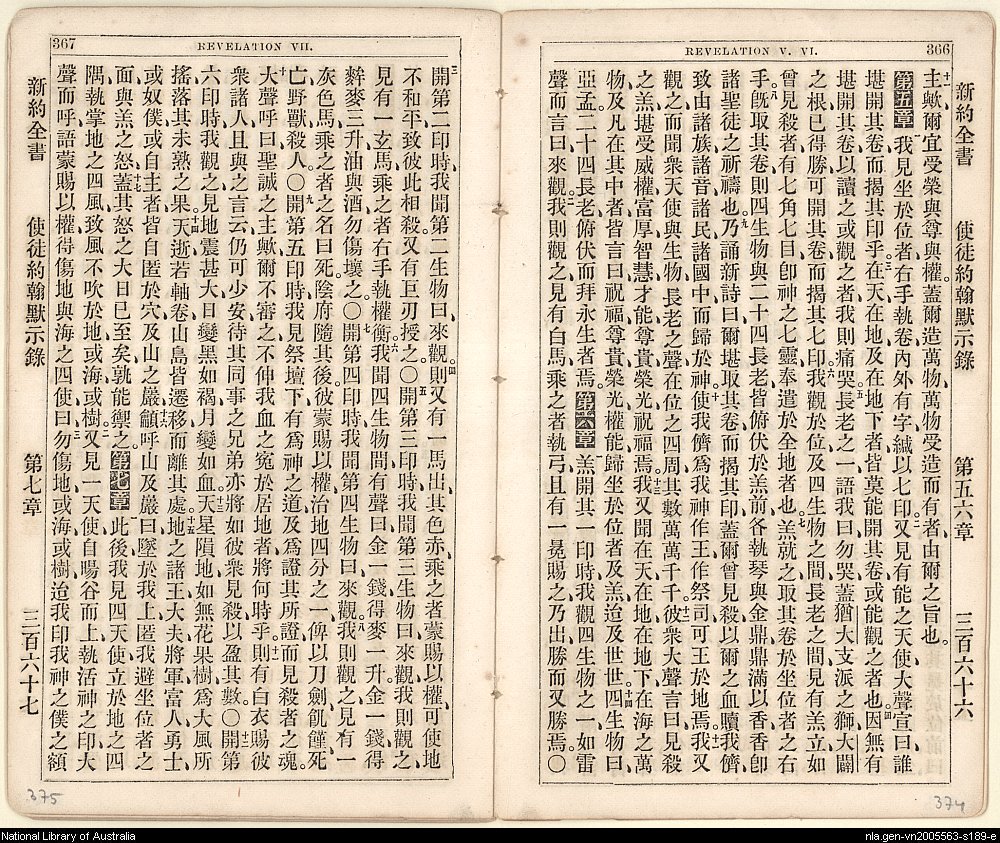 366
REVELATION V. VI.
新約全書 使徒約翰默示錄 第五六章 三百六十六
主歟、爾宜受榮與尊與權、蓋爾造萬物、萬物受造而有者、由爾之旨也。
第五章 我見坐於位者、右手執卷、內外有字、緘以七印、又見有能之天使、大聲宣曰、誰
堪開其卷、而揭其印乎、在天在地、及在地下者、皆莫能開其卷、或能觀之者也。因無有
堪開其卷以讀之、或觀之者、我則痛哭。長老之一語我曰、勿哭、蓋猶大支派之獅、大闢
之根、已得勝、可開其卷、而揭其七印。我觀於位及四生物之間、長老之間、見有羔立、如
曾見殺者、有七角七目、卽神之七靈、奉遣於全地者也。羔就之、取其卷於坐位者之右
手。旣取其卷、則四生物與二十四長老、皆俯伏於羔前、各執琴與金鼎、鼎滿以香、香卽
諸聖徒之祈禱也。乃誦新詩曰、爾堪取其卷、而揭其印、蓋爾曾見殺、以爾之血贖我儕、
致由諸族諸音諸民諸國中而歸於神、使我儕爲我神作王、作祭司、可王於地焉。我又
觀之、而聞衆天使與生物、長老之聲、在位之四周、其數萬萬千千、彼衆大聲言曰、見殺
之羔、堪受威權富厚智慧才能尊貴榮光祝福焉。我又聞在天、在地、在地下、在海之萬
物、及凡在其中者、皆言曰、祝福尊貴榮光權能、歸坐於位者、及羔、迨及世世。四生物曰、
亞孟、二十四長老、俯伏而拜永生者焉。 第六章 羔開其一印時、我觀四生物之一、如雷
聲而言曰、來觀、我則觀之、見有白馬、乘之者執弓、且有一冕賜之、乃出、勝而又勝焉。〇
367
REVELATION VII.
開第二印時、我聞第二生物曰、來觀。則又有一馬出、其色赤、乘之者蒙賜以權、可使地
不和平、致彼此相殺、又有巨刃授之。〇開第三印時、我聞第三生物曰、來觀、我則觀之、
見有一玄馬、乘之者右手執權衡、我聞四生物間有聲曰、金一錢得麥一升、金一錢得
麰麥三升、油與酒勿傷壞之。〇開第四印時、我聞第四生物曰、來觀、我則觀之、見有一
灰色馬、乘之者之名曰死、陰府隨其後、彼蒙賜以權、治地四分之一、俾以刀劍飢饉死
亡野獸殺人。〇開第五印時、我見祭壇下、有爲神之道、及爲證其所證而見殺者之魂。
大聲呼曰、聖誠之主歟、爾不審之、不伸我血之寃於居地者、將何時乎。則有白衣賜彼
衆諸人、且與之言云、仍可少安、待其同事之兄弟、亦將如彼衆見殺、以盈其數。〇開第
六印時、我觀之、見地震甚大、日變黑如褐、月變如血、天星隕地、如無花果樹、爲大風所
搖、落其未熟之果。天逝若軸卷、山島皆遷移而離其處。地之諸王大夫將軍富人勇士
或奴僕、或自主者、皆自匿於穴、及山之巖巓、呼山及巖曰、墜於我上、匿我避坐位者之
面、與羔之怒、蓋其怒之大日已至矣、孰能禦之。 第七章 此後我見四天使、立於地之四
隅、執掌地之四風、致風不吹於地、或海、或樹。又見一天使、自暘谷而上、執活神之印、大
聲而呼、語蒙賜以權得傷地與海之四使曰、勿傷地、或海、或樹、迨我印我神之僕之額
新約全書 使徒約翰默示錄 第七章 三百六十七
375
374
National Library of Australia
nla.gen-vn2005563-s189-e